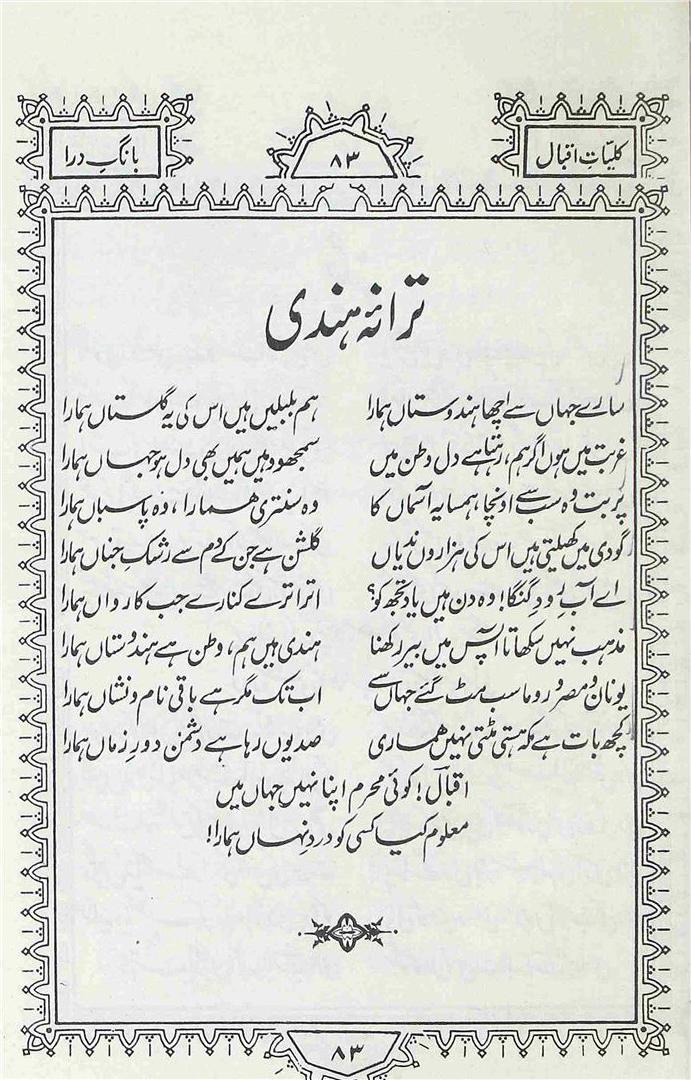 کلیاتِ اقبال
۸۳
بانگِ درا
ترانۂ ہندی
سارے جہاں سے اچھا ہندوستاں ہمارا ہم بلبلیں ہیں اس کی یہ گلستاں ہمارا
غربت میں ہوں اگر ہم، رہتا ہے دل وطن میں سمجھو وہیں ہمیں بھی دل ہو جہاں ہمارا
پربت وہ سب سے اونچا، ہمسایہ آسماں کا وہ سنتری ہمارا، وہ پاسباں ہمارا
گودی میں کھیلتی ہیں اس کی ہزاروں ندیاں گلشن ہے جن کے دم سے رشکِ جناں ہمارا
اے آبِ رودِ گنگا! وہ دن ہیں یاد تجھ کو؟ اترا ترے کنارے جب کارواں ہمارا
مذہب نہیں سکھاتا آپس میں بیر رکھنا ہندی ہیں ہم، وطن ہے ہندوستاں ہمارا
یونان و مصر و روما سب مٹ گئے جہاں سے اب تک مگر ہے باقی نام و نشاں ہمارا
کچھ بات ہے کہ ہستی مٹتی نہیں ہماری صدیوں رہا ہے دشمن دورِ زماں ہمارا
اقبال! کوئی محرم اپنا نہیں جہاں میں
معلوم کیا کسی کو دردِ نہاں ہمارا!
۸۳